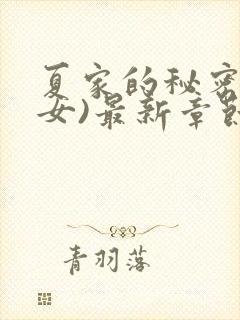 夏家的秘密
女)最新章节
青羽落